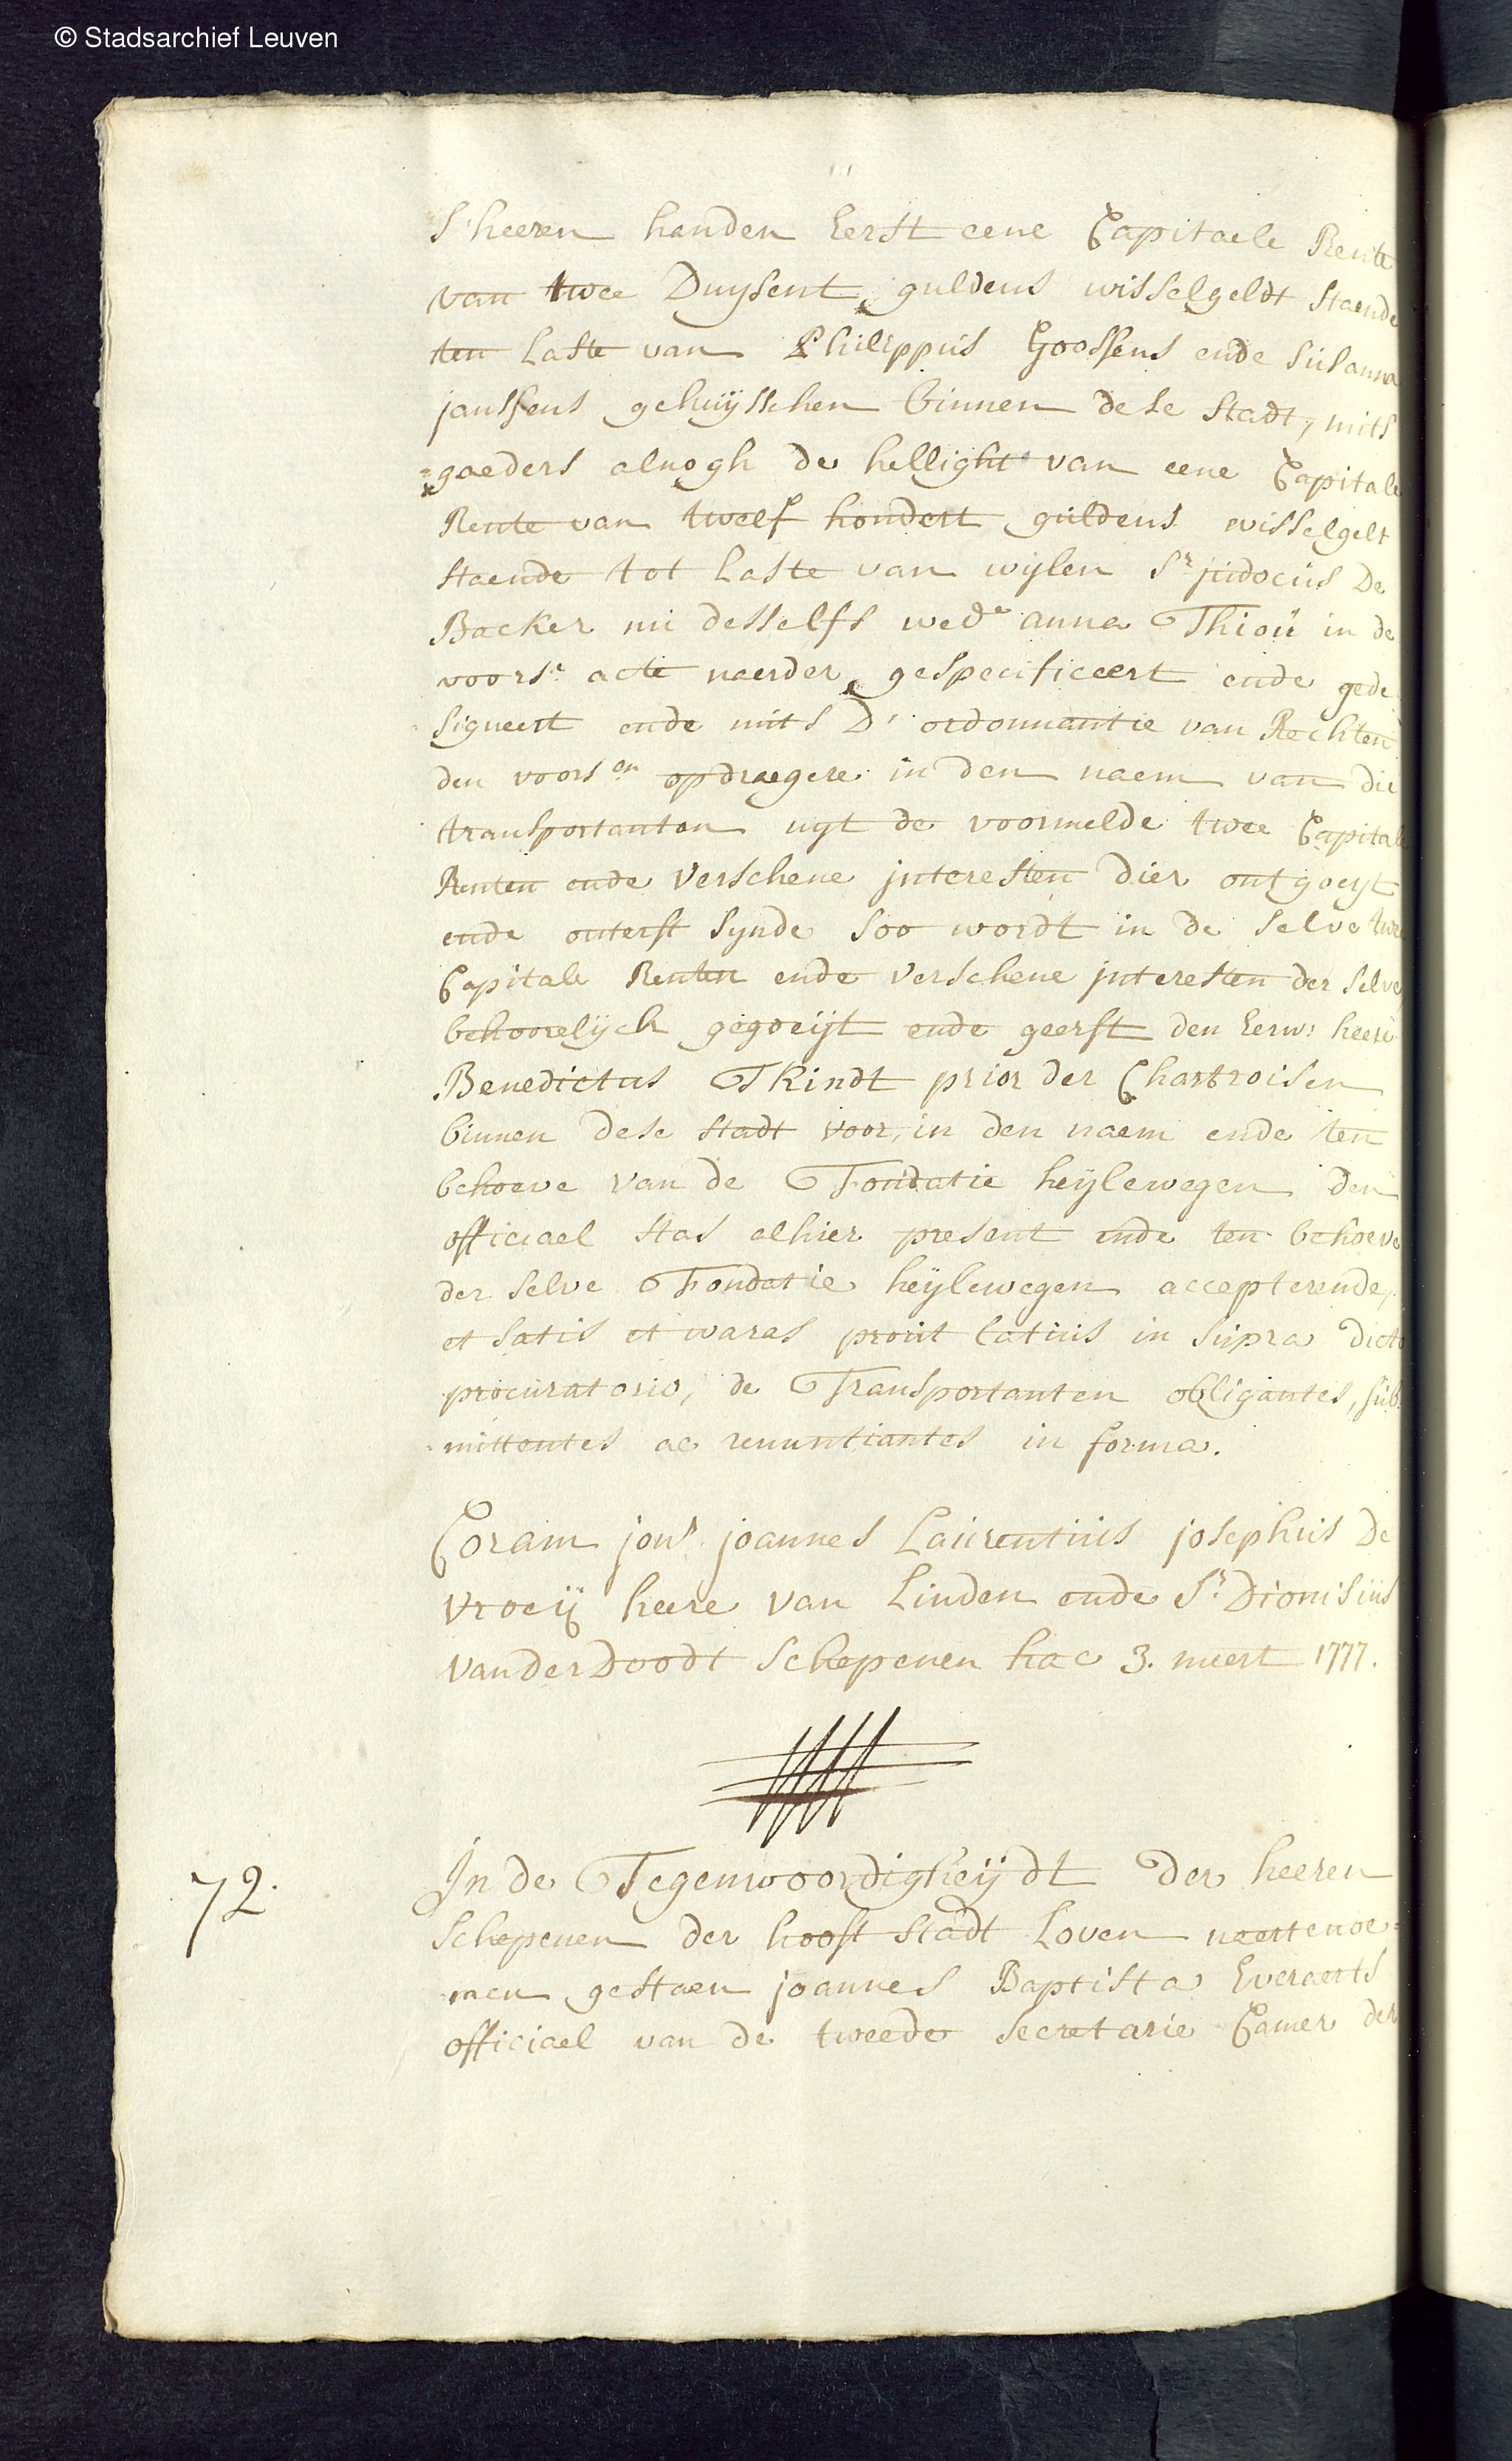 © Stadsarchief Leuven
S'heeren handen Eerst eene Capitaele Rente
van twee Duysent guldens wisselgeldt staende
ten laste van Philippus Goossens ende Susanna
janssens gehuysschen binnen dese stadt, mits
=gaeders alnogh de hellight van eene Capitale
Rente van twelf hondert guldens wisselgelt
staende tot laste van wijlen Sr judocus De
Backer nu desselfs wede anna Thiou in de
voorse acte naerder gespecificeert ende gede
signeert ende mits D'ordonnantie van Rechten
den voorsen opdraegere in den naem van die
transportanten uyt de voormelde twee Capitale
Renten ende verschene jnteresten dier ontgoeyt
ende onterft synde soo wordt in de selve twee
Capitale Renten ende verschene jnteresten der selve
behoorelijck gegoeijt ende geerft den Eerw: heere
Benedictus TKindt prior der Chartroisen
binnen dese stadt voor, in den naem ende ten
behoeve van de Fondatie heijlewegen den
officiael Stas alhier present ende ten behoeve
der selve Fondatie heijlewegen accepterende,
et satis et waras prout latius in supra dicto
procuratorio, de Transportanten obligantes, sub
mittentes ac renuntiantes in forma.
Coram jonr joannes Laurentius josephus De
Vroeij heere van Linden ende Sr Dionisius
vanderDoodt schepenen hac 3. meert 1777.
72.
In de Tegenwoordigheijdt der heeren
schepenen der hooft stadt Loven naertenoe=
men gestaen joannes Baptista Everaerts
officiael van de tweede secretarie Camer der